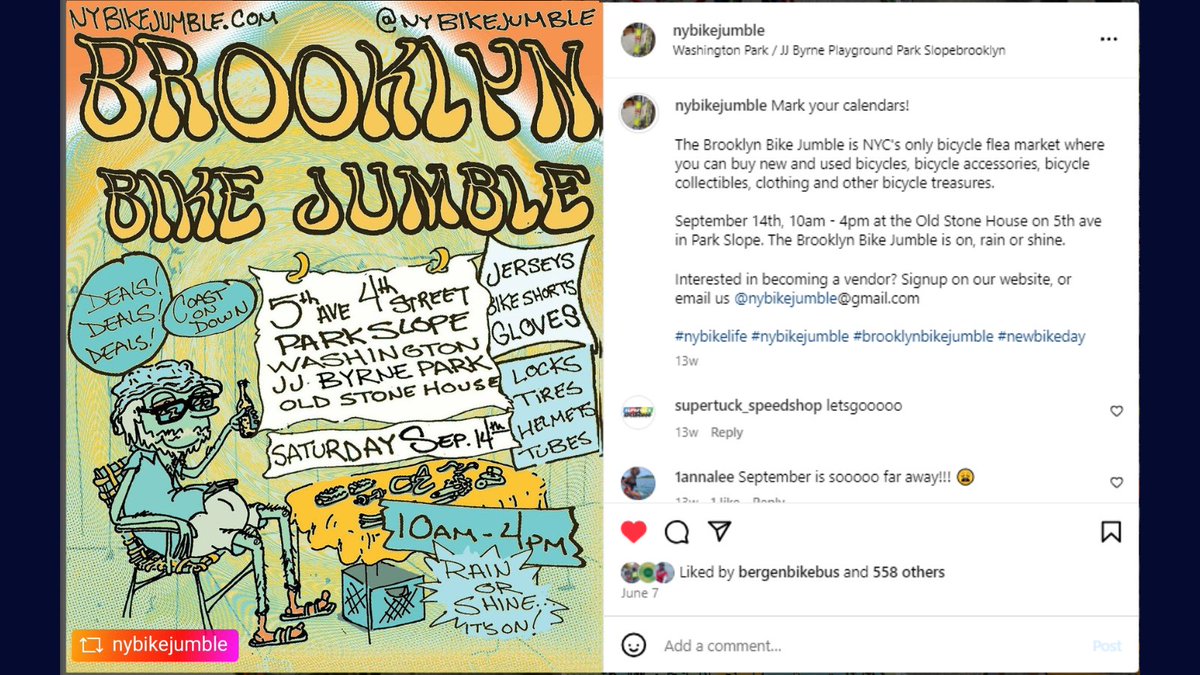 NYBIKEJUMBLE.COM
@NYBIKEJUMBLE
BROOKLYN
BIKE JUMBLE
DEALS!
DEALS!
DEALS!
COAST
ON
DOWN
5th AVE 4th STREET
PARK SLOPE
WASHINGTON
JJ BYRNE PARK
OLD STONE HOUSE
SATURDAY SEP. 14th
JERSEYS
BIKE SHORTS
GLOVES
LOCKS
TIRES
HELMETS
TUBES
10AM - 4PM
RAIN
OR
SHINE.
IT'S ON!
nybikejumble
nybikejumble
Washington Park / JJ Byrne Playground Park Slopebrooklyn
nybikejumble Mark your calendars!
The Brooklyn Bike Jumble is NYC's only bicycle flea market where
you can buy new and used bicycles, bicycle accessories, bicycle
collectibles, clothing and other bicycle treasures.
September 14th, 10am - 4pm at the Old Stone House on 5th ave
in Park Slope. The Brooklyn Bike Jumble is on, rain or shine.
Interested in becoming a vendor? Signup on our website, or
email us @nybikejumble@gmail.com
#nybikelife #nybikejumble #brooklynbikejumble #newbikeday
13w
supertuck_speedshop letsgooooo
13w Reply
1annalee September is sooooo far away!!! 😩
13w 1 like Reply
Liked by bergenbikebus and 558 others
June 7
Add a comment...
Post